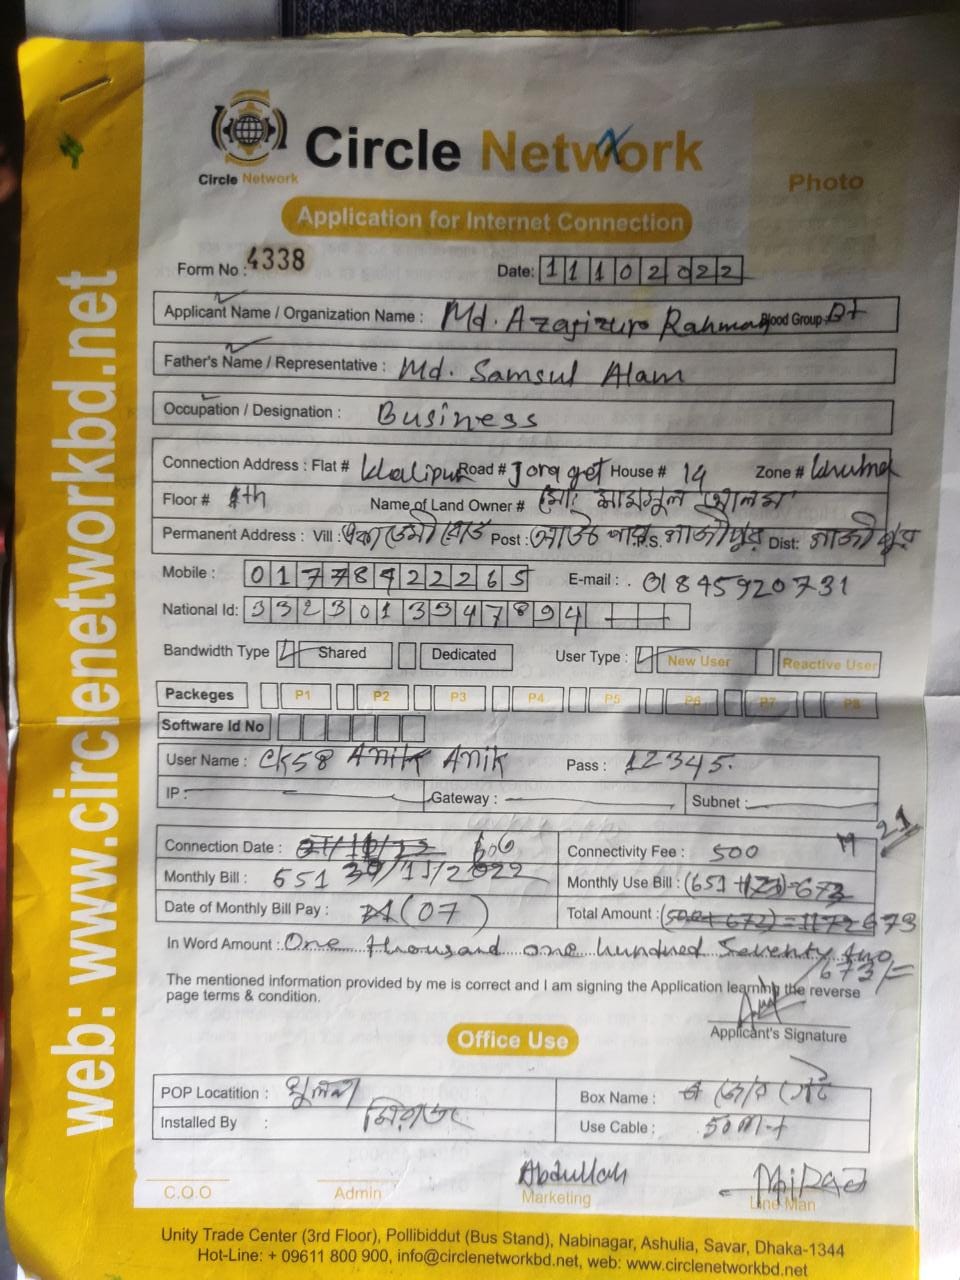 Circle Network
Circle Network
Photo
Application for Internet Connection
Form No : 4338
Date: 11102022
Applicant Name / Organization Name : Md. Azajizur Rahman Blood Group B+
Father's Name / Representative : Md. Samsul Alam
Occupation / Designation : Business
Connection Address : Flat # khalipur Road # Jora get House # 14 Zone # khulna
Floor # 4th Name of Land Owner # মোঃ সামসুল আলম
Permanent Address : Vill : Post : P.S. গাজীপুর Dist: গাজীপুর
Mobile : 01778422265 E-mail : 01845920731
National Id: 3323013947894
Bandwidth Type Shared Dedicated User Type : New User Reactive User
Packeges P1 P2 P3 P4 P5 P6 P7 P8
Software Id No
User Name : CK58 Anik Anik Pass : 12345.
IP : Gateway : Subnet :
Connection Date : 600 Connectivity Fee : 500 21
Monthly Bill : 651 30/11/2022 Monthly Use Bill : (651 + )=673
Date of Monthly Bill Pay : (07) Total Amount : (500+672)=1172 673
In Word Amount : One thousand one hundred Seventy two
673/-
The mentioned information provided by me is correct and I am signing the Application learning the reverse
page terms & condition.
Applicant's Signature
Office Use
POP Locatition : খুলনা Box Name : জোড়া গেট
Installed By : মিরাজ Use Cable : 50m
Abdullah Miraj
C.O.O Admin Marketing Line Man
Unity Trade Center (3rd Floor), Pollibiddut (Bus Stand), Nabinagar, Ashulia, Savar, Dhaka-1344
Hot-Line: + 09611 800 900, info@circlenetworkbd.net, web: www.circlenetworkbd.net
web: www.circlenetworkbd.net